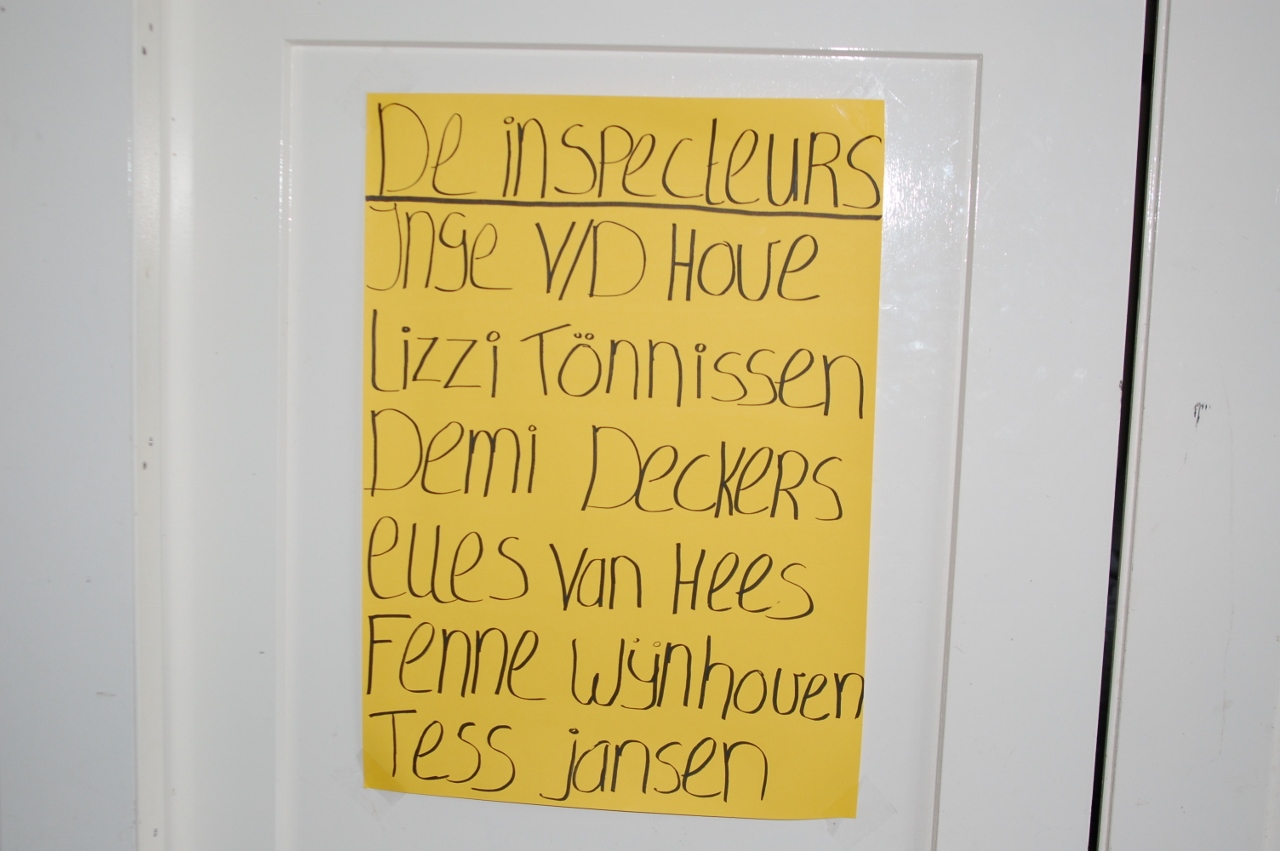 De inspecteurs
Inge V/D Hove
Lizzi Tönnissen
Demi Deckers
elles van Hees
Fenne Wijnhoven
Tess jansen